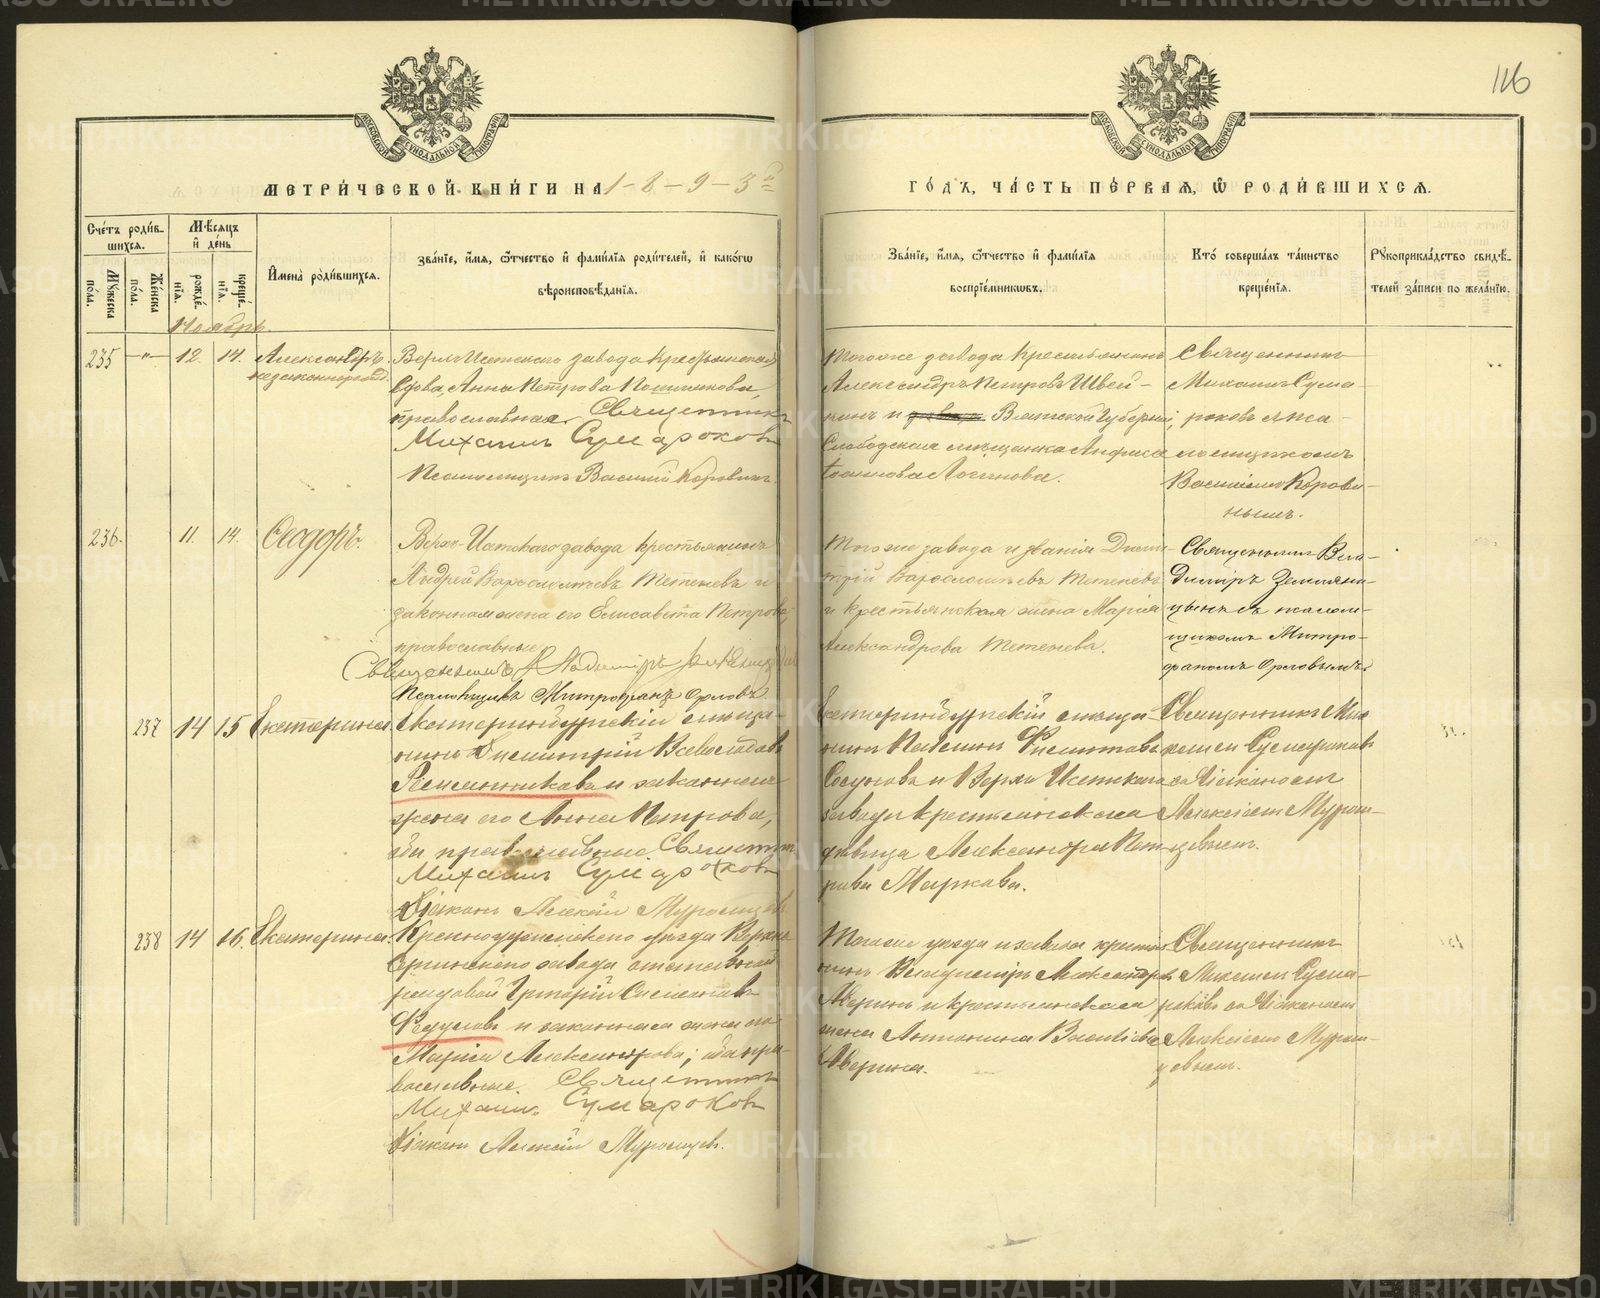 116
МЕТРИ́ЧЕСКОЙ КНИ́ГИ НА 1-8-9-3й
ГО́ДЪ, ЧА́СТЬ ПЕ́РВАЯ, Ѿ РОДИ́ВШИХСЯ.
Сче́тъ роди́в-
шихся.
Мѣ́сяцъ
и҆ де́нь
Му́жеска по́ла.
Же́нска по́ла.
рожде́-
нїя.
креще́-
нїя.
И҆мена̀ роди́вшихся.
Зва́нїе, и҆́мя, ѻ҆́тчество и҆ фами́лїя роди́телей, и҆ како́гѡ
вѣроисповѣ́данїя.
Зва́нїе, и҆́мя, ѻ҆́тчество и҆ фами́лїя
воспрїе́мникѡвъ.
Кто̀ соверша́лъ та́инство
креще́нїя.
Рꙋкоприкла́дство свидѣ́-
телей за́писи по жела́нїю.
Ноябрь.
235 —"— 12. 14. Александръ
незаконнорожд.
Верхъ-Исетскаго завода крестьянская
вдова, Анна Петрова
православная. Священникъ
Михаилъ Сумароковъ
Псаломщикъ Василій Коровинъ.
тогоже завода крестьянинъ
Александръ Петровъ Швей-
кинъ и Вятской Губерніи,
Слободская мѣщанка Анфиса
Іоаннова Логинова.
Священникъ
Михаилъ Сума-
роковъ съ пса-
ломщикомъ
Василіемъ Корови-
нымъ.
236. 11. 14. Ѳеодоръ.
Верхъ-Исетскаго завода крестьянинъ
Андрей Варѳоломѣевъ Тетеневъ и
законная жена его Елисавета Петрова,
православные.
Священникъ Владиміръ Земляницынъ
Псаломщикъ Митрофанъ Орловъ
Тогоже завода и званія Дими-
трій Варѳоломѣевъ Тетеневъ
и крестьянская жена Марія
Александрова Тетенева.
Священникъ Вла-
диміръ Земляни-
цынъ съ псалом-
щикомъ Митро-
фаномъ Орловымъ.
237 14 15 Екатерина
Екатеринбургскій мѣща-
нинъ Димитрій Всеволодовъ
и законная
жена его Анна Петрова,
оба православные. Священник
Михаилъ Сумароковъ
Діаконъ Алексій Муромцевъ
Екатеринбургскій мѣща-
нинъ Филипповъ
и Верхъ Исетскаго
завода крестьянская
дѣвица Александра Пет-
рова Маркова.
Священникъ Ми-
хаилъ Сумароковъ
съ Діакономъ
Алексіемъ Муром-
цевымъ.
238 14 16. Екатерина.
Красноуфимскаго уѣзда Верхне-
Сергинскаго завода отставной
рядовой Григорій Симеоновъ
Федуловъ и законная жена его
Марія Александрова; оба пра-
вославные. Священникъ
Михаилъ Сумароковъ
Діаконъ Алексій Муромцевъ.
Тогоже уѣзда и завода крестья-
нинъ Владиміръ Александровъ
Аверинъ и крестьянская
жена Антонина
Аверина.
Священникъ
Михаилъ Сума-
роковъ съ Діакономъ
Алексіемъ Муром-
цевымъ.
METRIKI.GASO-URAL.RU